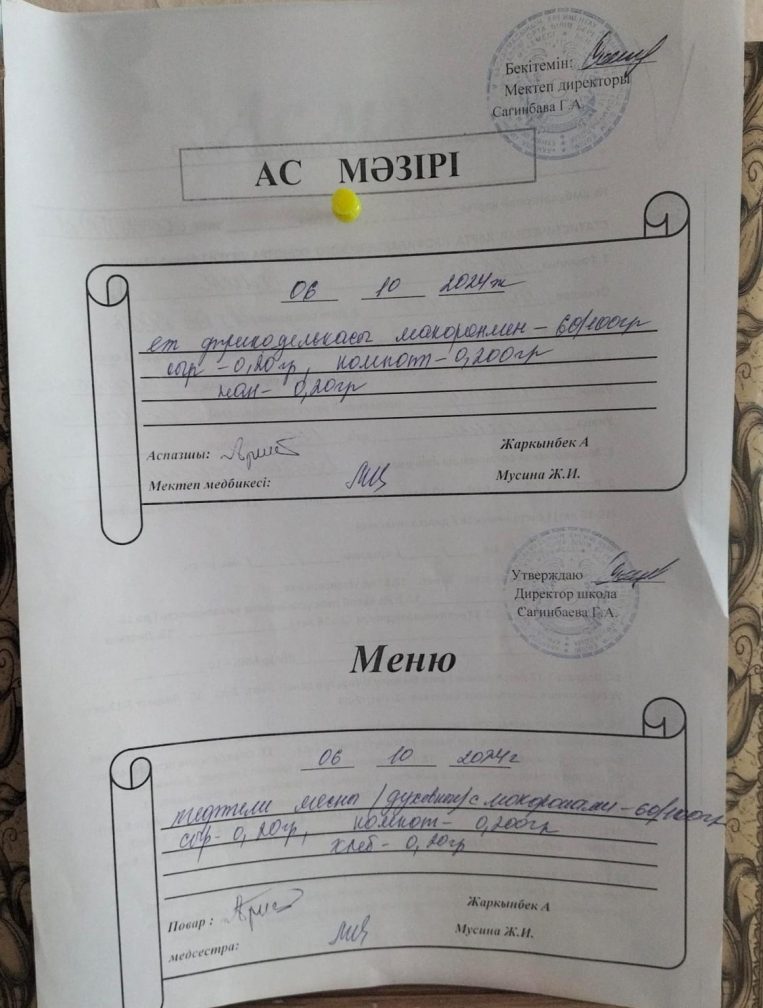 Бекітемін:
Мектеп директоры
Сагинбава Г.А.
АС МӘЗІРІ
06 10 2024ж
ет фрикаделькасы макоронмен - 60/100гр
сыр - 0,20гр, компот - 0,200гр
нан - 0,20гр
Аспазшы: Жаркынбек А
Мектеп медбикесі: Мусина Ж.И.
Утверждаю
Директор школа
Сагинбаева Г.А.
Меню
06 10 2024г
тефтели мясны /духовные/ с макоронами - 60/100гр
сыр - 0,20гр, компот - 0,200гр
хлеб - 0,20гр
Повар : Жаркынбек А
медсестра: Мусина Ж.И.